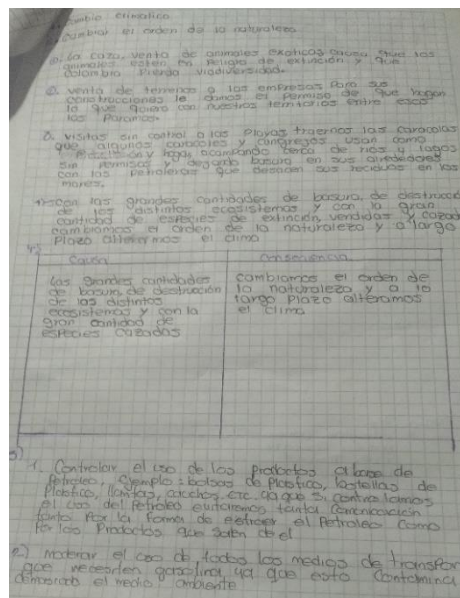 cambio climatico
cambiar el orden de la naturaleza
a. la caza, venta de animales exoticos causa que los
animales esten en peligro de extinción y que
Colombia pierda viodiversidad.
b. venta de terrenos a las empresas para sus
construcciones le damos el permiso de que hagan
lo que quieran con nuestros territorios entre esos
los Paramos.
visitas sin control a las playas traemos las caracolas
que algunos caracoles y cangrejos usan como
y hogar, acampando cerca de rios y lagos
sin permisos y dejando basura en sus alrededores
con las petroleras que desacen sus reciduos en los
mares.
con las grandes cantidades de basura, de destrucc
de los distintos ecosistemas y con la gran
cantidad de especies de extincion, vendidas y cazad
cambiamos el orden de la naturaleza y a largo
plazo alteramos el clima
4)
Causa consecuencia
las grandes cantidades
de basura, de destrucción
de los distintos
ecosistemas y con la
gran cantidad de
especies cazadas
cambiamos el orden de
la naturaleza y a lo
largo plazo alteramos
el clima
5)
1. Controlar el uso de los Productos a base de
Petroleo, ejemplo: bolsas de plastico, botellas de
plastico, llantas, cauchos, etc. ya que si controlamos
el uso del petroleo evitaremos tanta
tanto por la forma de extraer el Petroleo como
por los Productos que salen de el
2) moderar el uso de todos los medios de transpor
que necesiten gasolina ya que esto contamina
demasiado el medio ambiente